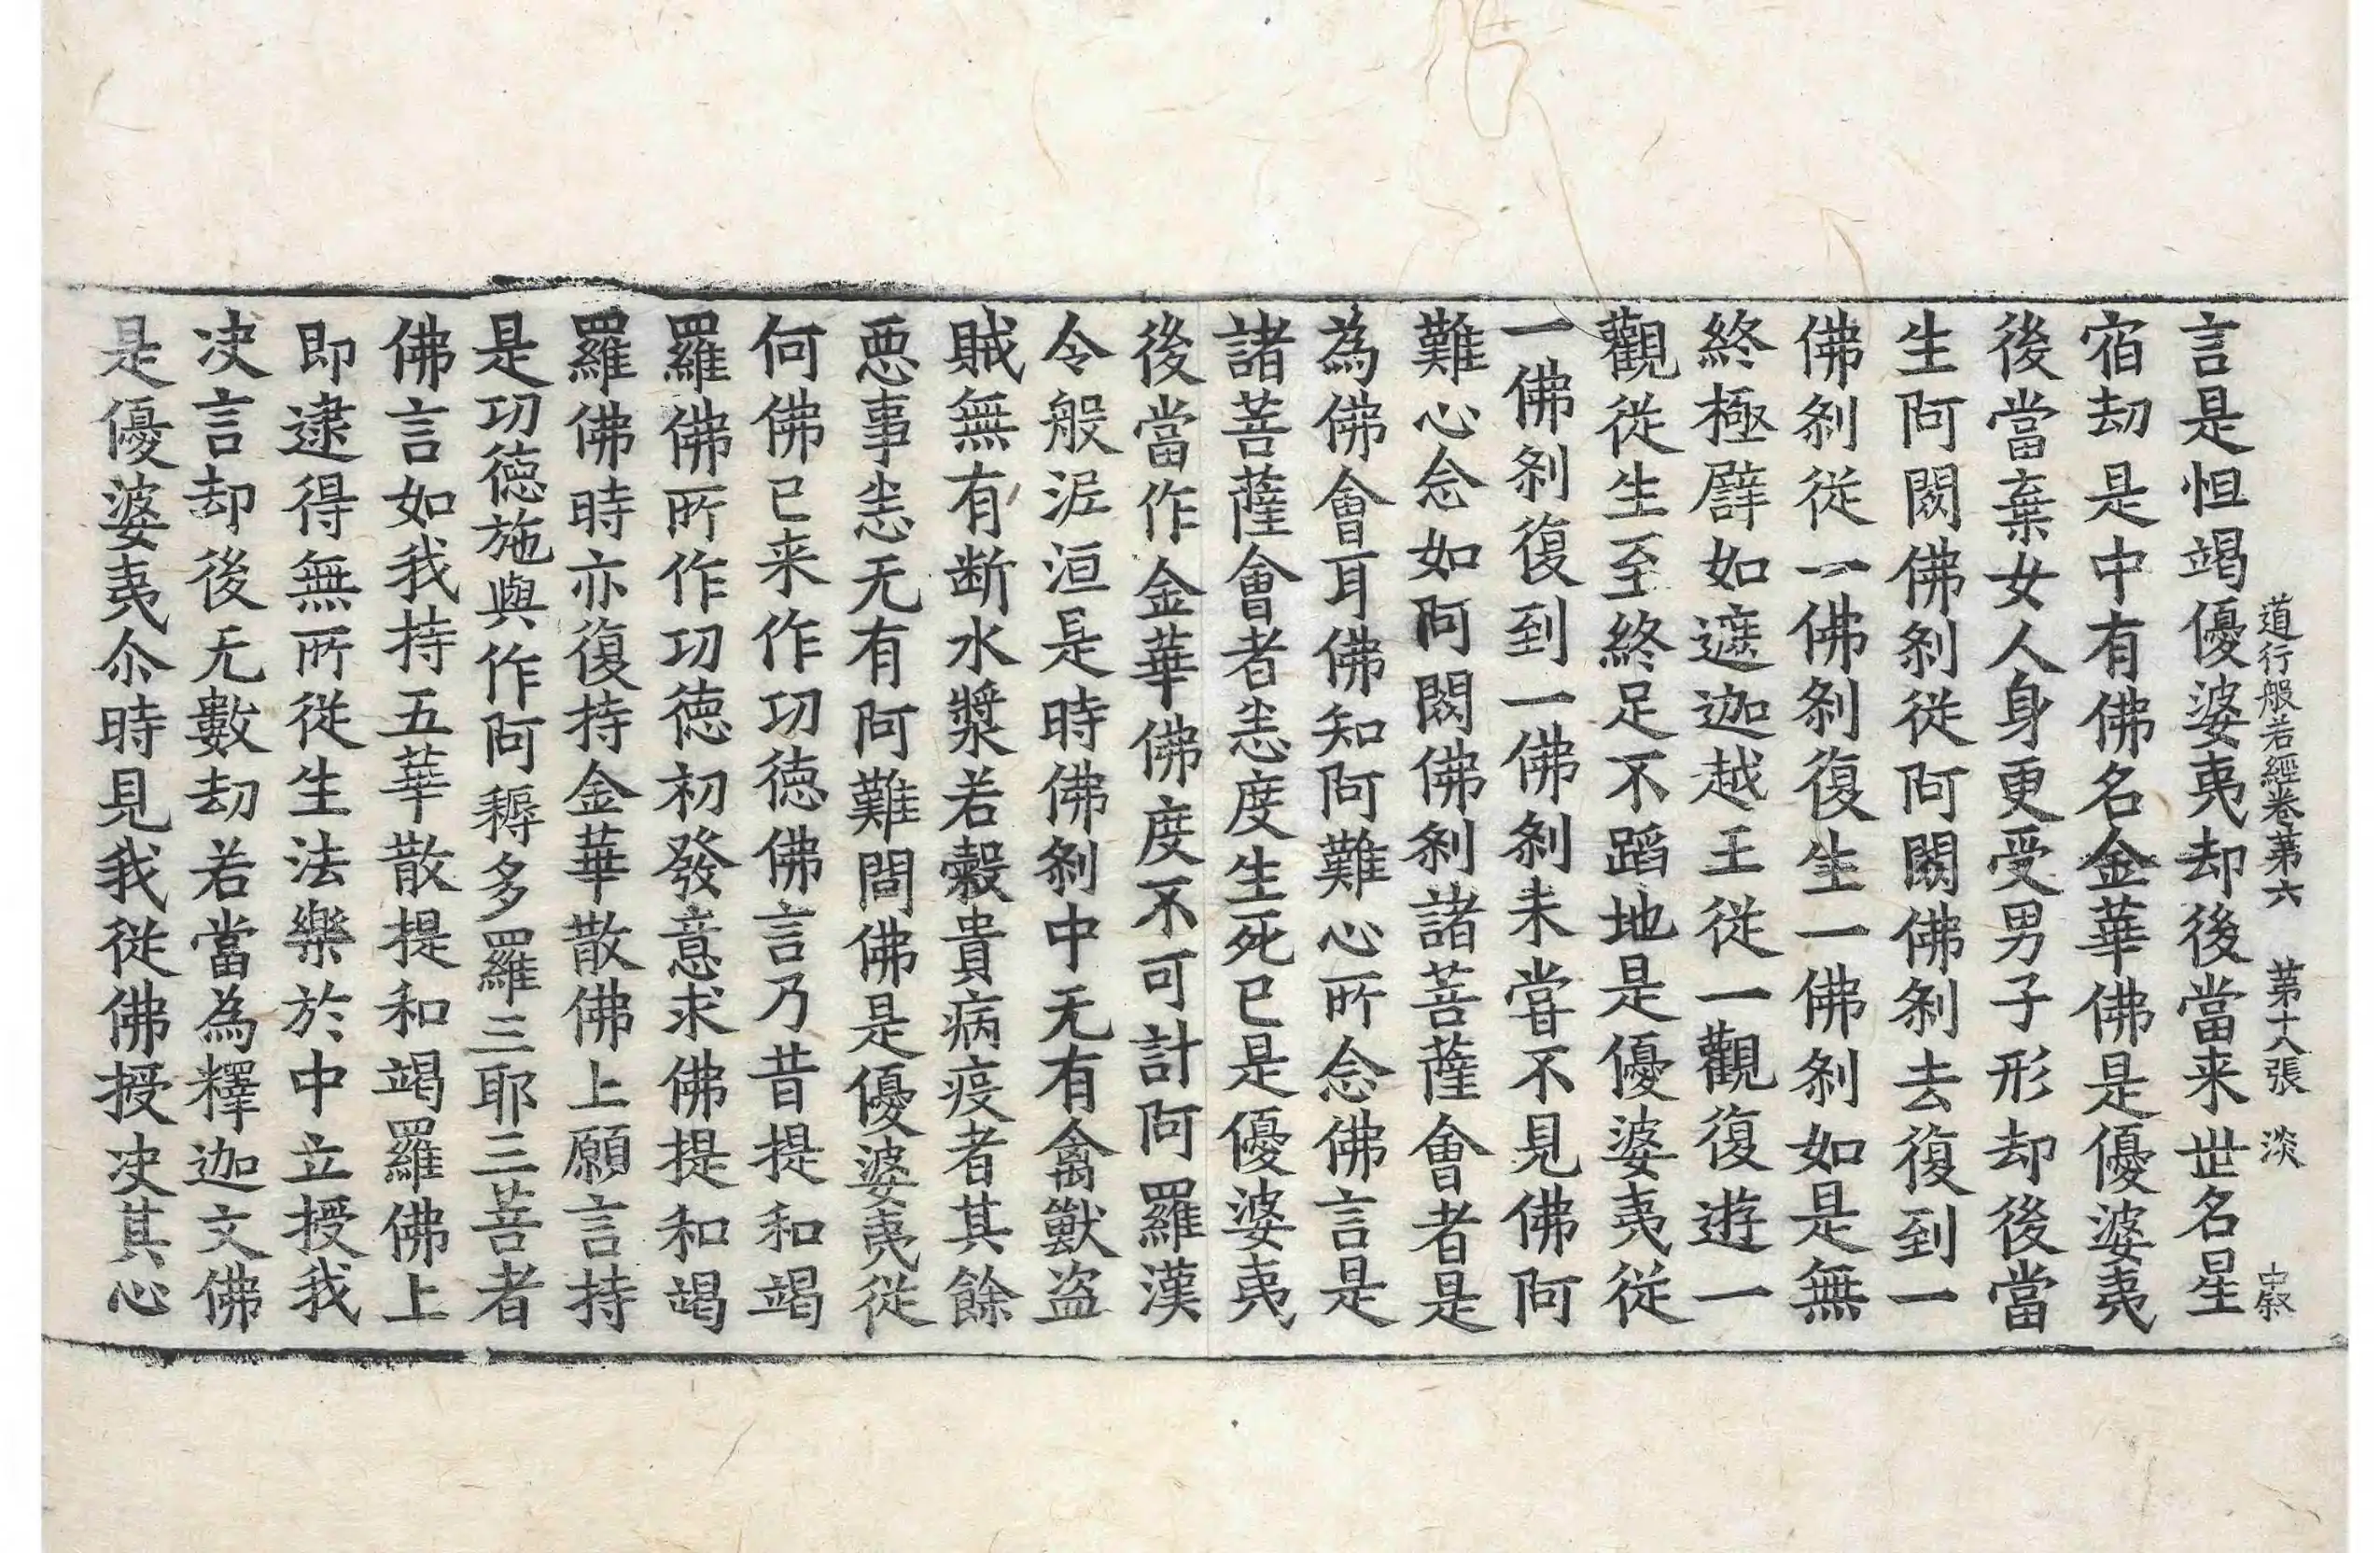 道行般若經卷第六　第十八張　淡　中叔
言是怛竭優婆夷却後當来世名星
宿劫是中有佛名金華佛是優婆夷
後當棄女人身更受男子形却後當
生阿閦佛刹從阿閦佛刹去復到一
佛刹從一佛刹復生一佛刹如是無
終極譬如遮迦越王從一觀復遊一
觀從生至終足不蹈地是優婆夷從
一佛刹復到一佛刹未甞不見佛阿
難心念如阿閦佛刹諸菩薩會者是
為佛會耳佛知阿難心所念佛言是
諸菩薩會者悉度生死已是優婆夷
後當作金華佛度不可計阿羅漢
令般泥洹是時佛刹中无有禽獸盗
賊無有断水漿若穀貴病疫者其餘
惡事悉无有阿難問佛是優婆夷從
何佛已来作功德佛言乃昔提和竭
羅佛所作功德初發意求佛提和竭
羅佛時亦復持金華散佛上願言持
是功德施與作阿耨多羅三耶三菩者
佛言如我持五華散提和竭羅佛上
即逮得無所從生法樂於中立授我
决言却後无數劫若當為釋迦文佛
是優婆夷尒時見我從佛授决其心